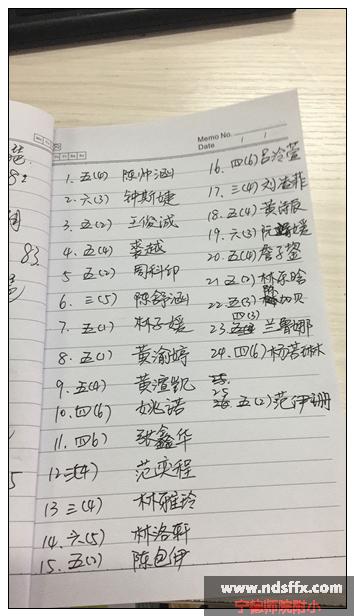 Memo No.
Date / /
1. 五(4) 陈帅涵
2. 六(3) 钟斯婕
3. 五(2) 王俊诚
4. 五(4) 裘越
5 五(2) 周科印
6. 三(5) 陈舒涵
7. 五(1) 林子媛
8. 五(1) 黄渝婷
9. 五(4) 黄渡凯
10. 四(6) 姚诺
11. 四(6) 张鑫华
12. 三(4) 范奕程
13 三(4) 林雅玲
14. 六(5) 林洛轩
15. 五(2) 陈包伊
16. 四(6) 吕冷萱
17. 三(4) 刘
18. 五(4) 黄诗辰
19. 六(3) 阮 媛
20. 五(4) 詹子
21. 五(2) 林乐晗
22. 五(3) 加贝
23. 四(3) 兰馨娜
24. 四(6) 杨若琳
25. 五(2) 范伊珊
83.
www.ndsffx.com
宁德师院附小